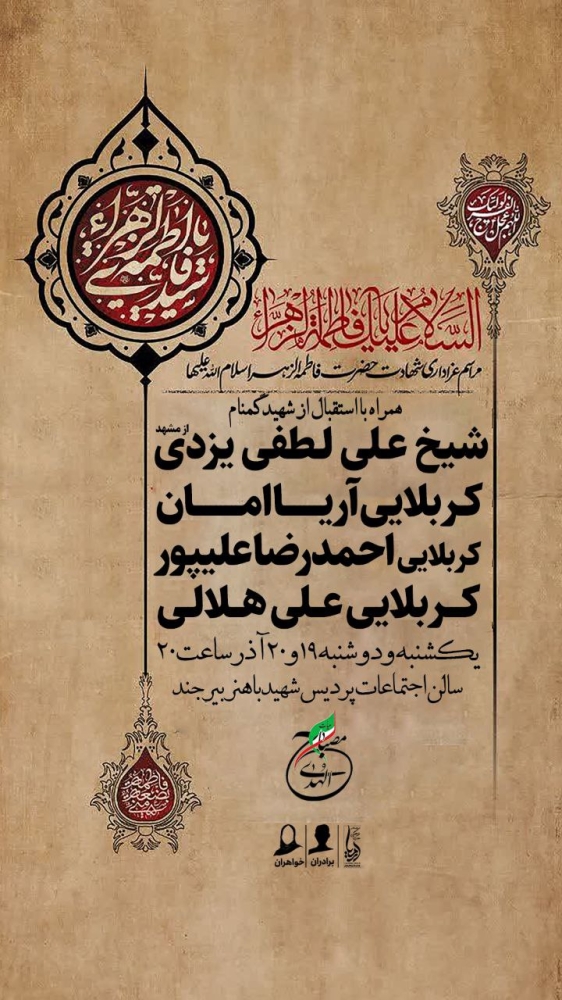 یا فاطمة الزهراء
سیدتی
السلام علیک یا فاطمة الزهراء
مراسم عزاداری شهادت حضرت فاطمه الزهرا سلام الله علیها
همراه با استقبال از شهید گمنام
شیخ علی لطفی یزدی از مشهد
کربلایی آریا امان
کربلایی احمدرضا علیپور
کربلایی علی هلالی
یکشنبه و دوشنبه ۱۹ و ۲۰ آذر ساعت ۲۰
سالن اجتماعات پردیس شهید باهنر بیرجند
مصباح الهدی
برادران خواهران